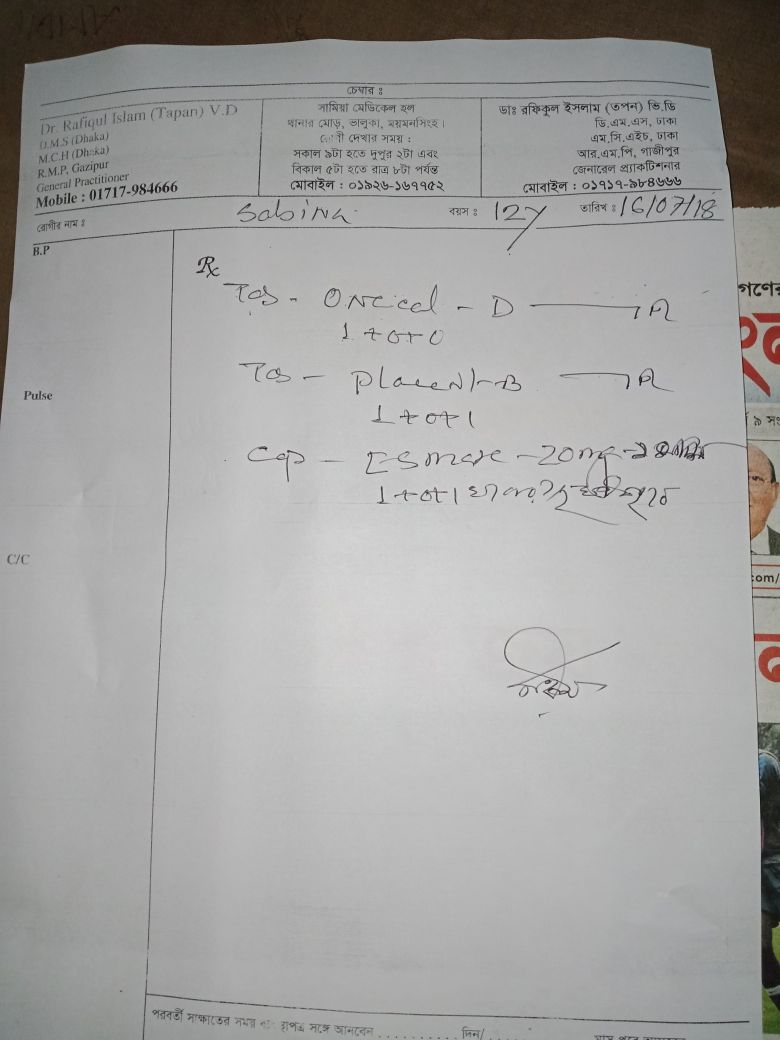 চেম্বার ঃ
Dr. Rafiqul Islam (Tapan) V.D
D.M.S (Dhaka)
M.C.H (Dhaka)
R.M.P, Gazipur
General Practitioner
Mobile : 01717-984666
সামিয়া মেডিকেল হল
থানার মোড়, ভালুকা, ময়মনসিংহ।
রোগী দেখার সময় :
সকাল ৯টা হতে দুপুর ২টা এবং
বিকাল ৫টা হতে রাত্র ৮টা পর্যন্ত
মোবাইল : ০১৯২৬-১৬৭৭৫২
ডাঃ রফিকুল ইসলাম (তপন) ভি.ডি
ডি.এম.এস, ঢাকা
এম.সি.এইচ, ঢাকা
আর.এম.পি, গাজীপুর
জেনারেল প্র্যাকটিশনার
মোবাইল : ০১৭১৭-৯৮৪৬৬৬
রোগীর নাম ঃ Sabina বয়স ঃ 12y তারিখ ঃ 16/07/18
B.P
Rx
Tab - - D
1+0+0
Pulse
Tab - - B
1+0+1
Cap - - 20mg -
1+0+1
C/C
পরবর্তী সাক্ষাতের সময় সঙ্গে আনবেন ......... দিন/
গণের
com/